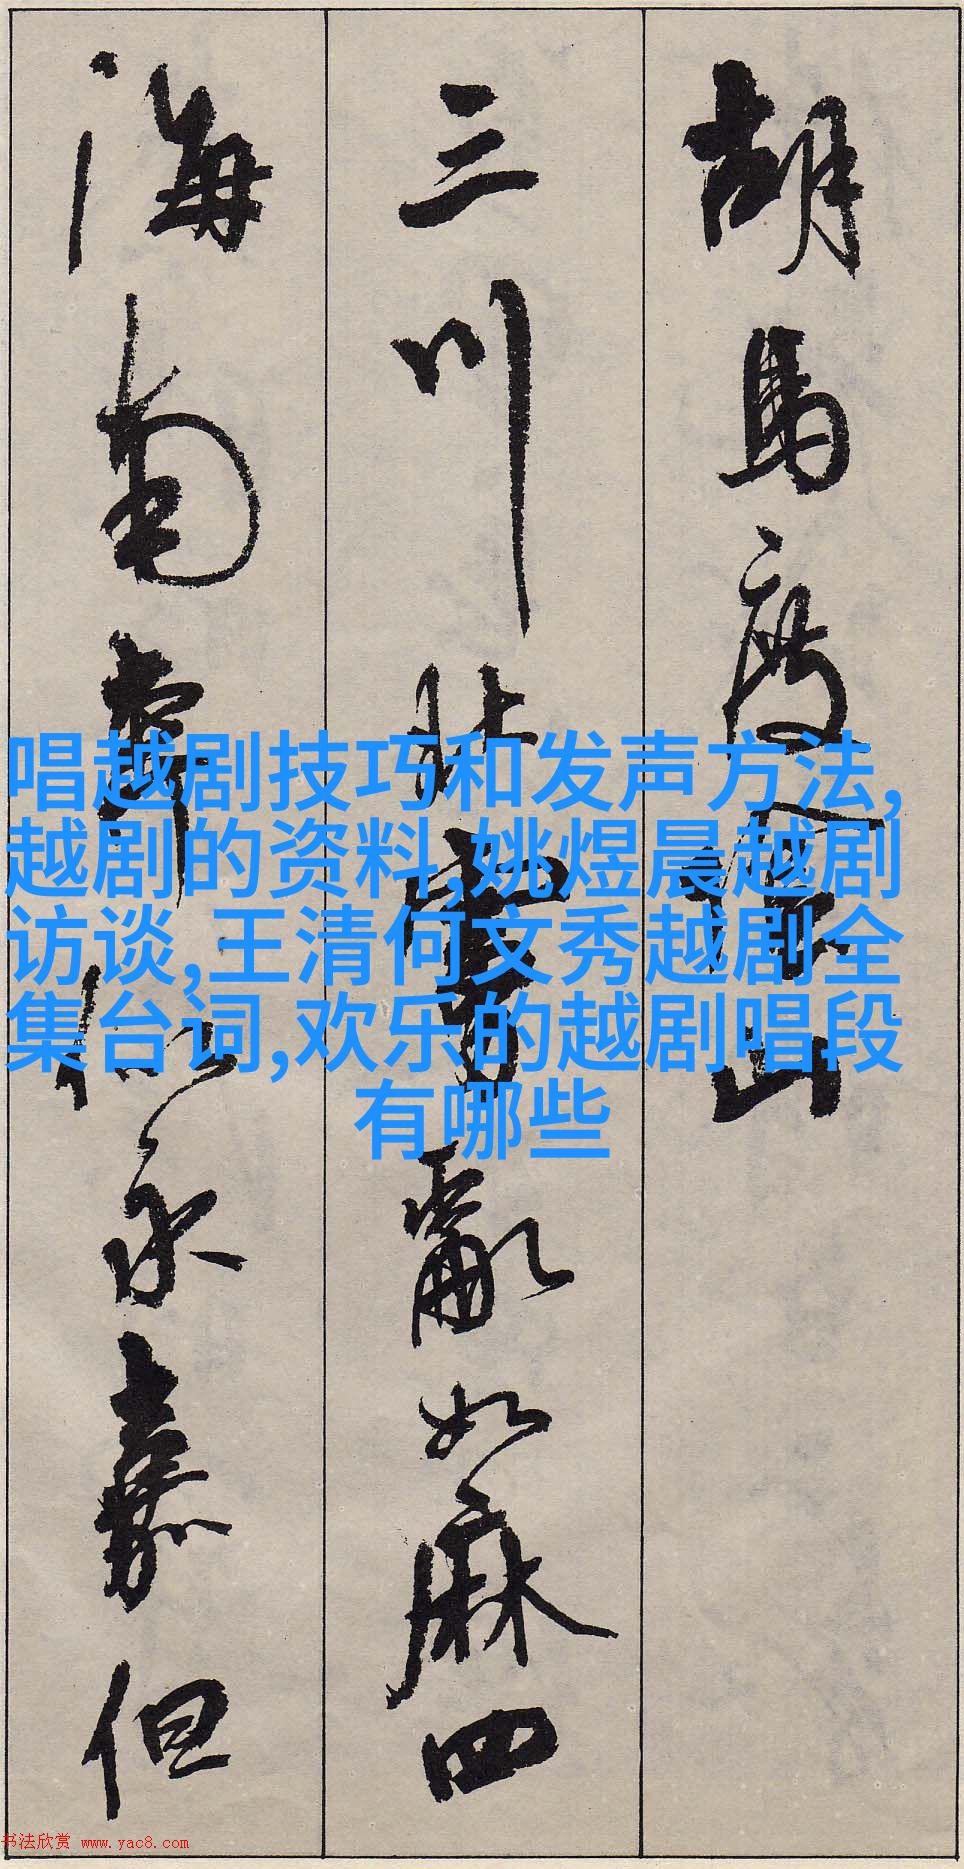 胡馬度陰山
三川北虜亂如麻四
海南奔似永嘉但
唱越剧技巧和发声方法,
越剧的资料,姚煜晨越剧
访谈,王清何文秀越剧全
集台词,欢乐的越剧唱段
有哪些
书法欣赏 www.yac8.com